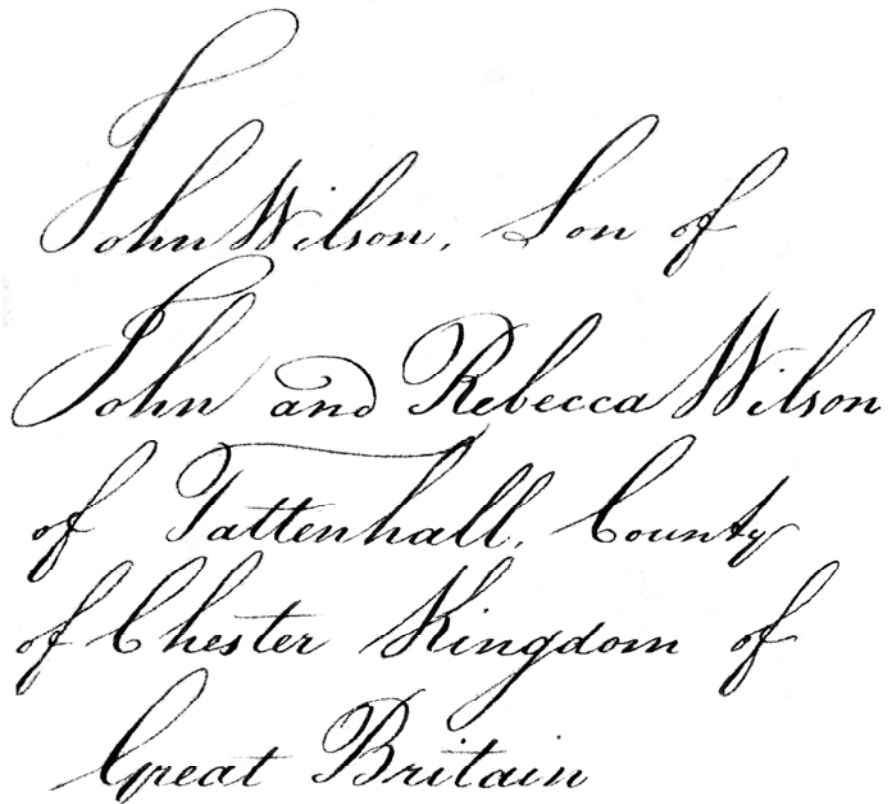 John Wilson, Son of
John and Rebecca Wilson
of Tattenhall, County
of Chester Kingdom of
Great Britain